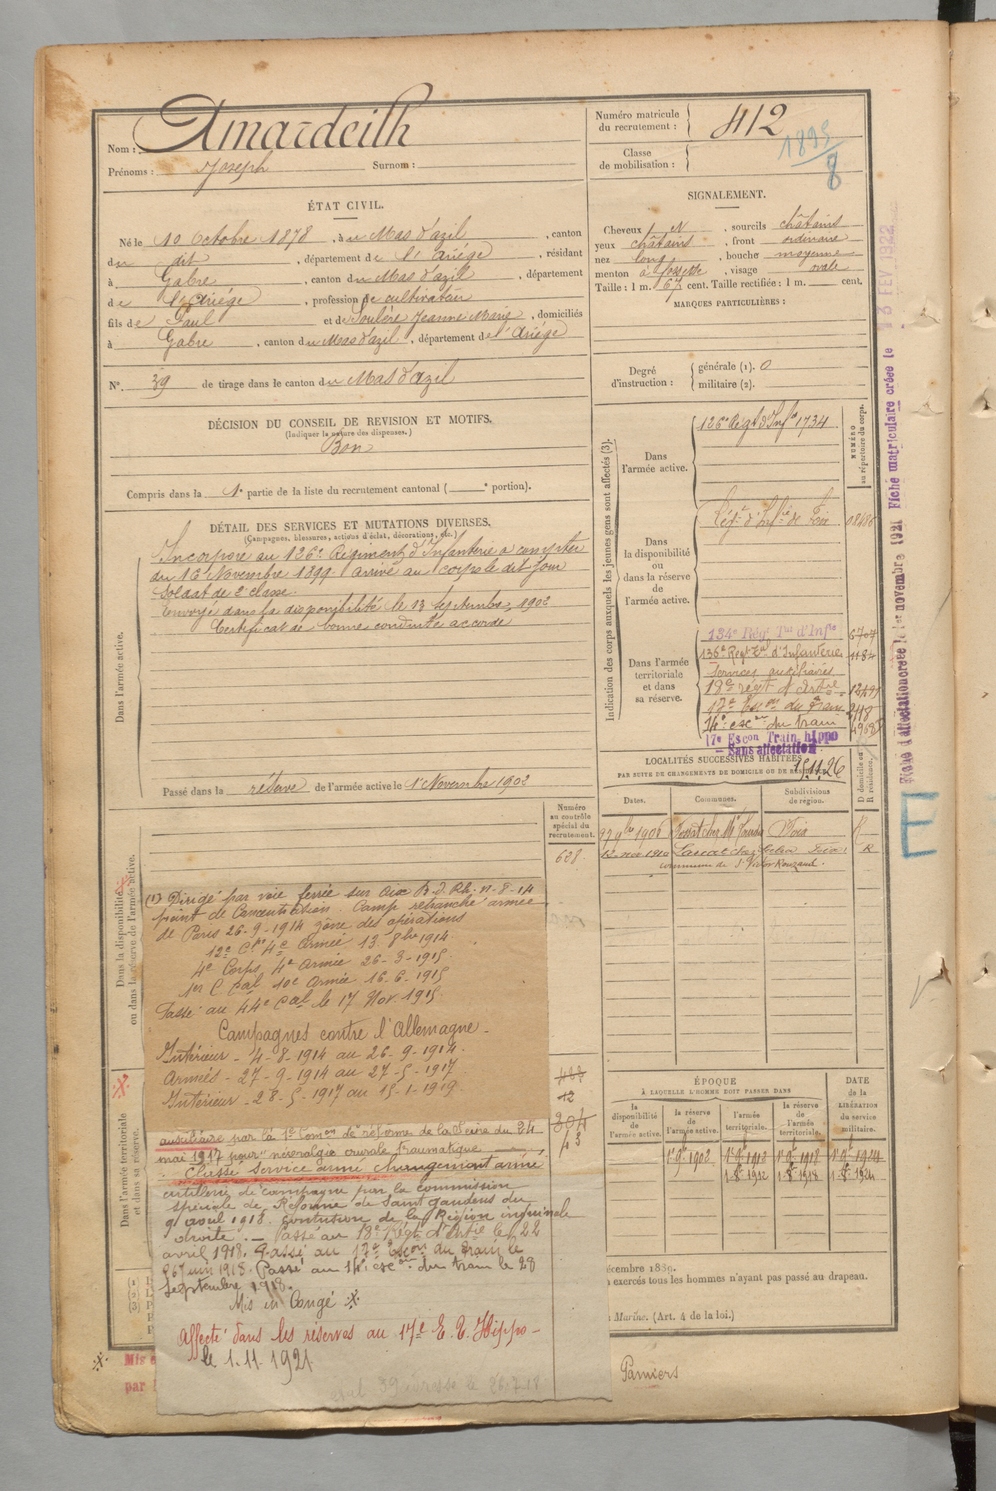 Nom : Amardeilh
Prénoms : Joseph Surnom :
Numéro matricule du recrutement : 412
Classe de mobilisation :
1895/8
ÉTAT CIVIL.
Né le 10 Octobre 1878, à u Mas d'azil, canton
du dit, département de l'Ariége, résidant
à Gabre, canton du Mas d'azil, département
de l'Ariége, profession de cultivateur
fils de Paul et de Soulére Jeanne Marie, domiciliés
à Gabre, canton du Mas d'azil, département de l'Ariége
N°. 39 de tirage dans le canton du Mas d'azil
SIGNALEMENT.
Cheveux N, sourcils châtains
yeux châtains, front ordinaire
nez long, bouche moyenne
menton à fossette, visage ovale
Taille : 1 m. 67 cent. Taille rectifiée : 1 m. cent.
MARQUES PARTICULIÈRES :
Degré d'instruction : générale (1). 0
militaire (2).
DÉCISION DU CONSEIL DE REVISION ET MOTIFS.
(Indiquer la nature des dispenses.)
Bon
Compris dans la 1e partie de la liste du recrutement cantonal ( e portion).
DÉTAIL DES SERVICES ET MUTATIONS DIVERSES.
(Campagnes, blessures, actions d'éclat, décorations, etc.)
Dans l'armée active.
Incorporé au 126e Régiment d'Infanterie à compter
du 16 Novembre 1899 arrivé au corps le dit jour
Soldat de 2e classe.
Envoyé dans la disponibilité le 13 Septembre 1902
Certificat de bonne conduite accordé
Passé dans la réserve de l'armée active le 1er Novembre 1902
Indication des corps auxquels les jeunes gens sont affectés (3).
NUMÉRO au répertoire du corps.
Dans l'armée active.
126e Régt d'Infie 1734
Dans la disponibilité ou dans la réserve de l'armée active.
Régt d'Infie de Foix
Dans l'armée territoriale et dans sa réserve.
134e Régt Tal d'Infie 6707
136e Régt Tal d'Infanterie 1184
Services auxiliaires
18e régt d'Artie
17e Escon du Train 2118
14e escon du train
17e Escon Train hippo
Sans affectation
15.11.26
LOCALITÉS SUCCESSIVES HABITÉES
PAR SUITE DE CHANGEMENTS DE DOMICILE OU DE RÉSIDENCE.
D domicile ou R résidence.
Dates. Communes. Subdivisions de région.
27 9bre 1906 Foix
R
commune de St Victor Rouzaud.
Numéro au contrôle spécial du recrutement.
628
Dans la disponibilité ou dans la réserve de l'armée active.
(1) Dirigé par voie ferrée sur
point de Concentration. Camp retranché armée
de Paris 26-9-1914 zône des opérations
12e Cps 4e Armée 13 8bre 1914
4e Corps, 4e Armée 26-3-1915.
1er C Cal 10e Armée 16-6-1915
Passé au 44e Cal le 17 Nov 1915.
Campagnes contre l'Allemagne -
Intérieur - 4-8-1914 au 26-9-1914.
Armées - 27-9-1914 au 27-5-1917
Intérieur - 28-5-1917 au 15-1-1919
Dans l'armée territoriale et dans sa réserve.
auxiliaire par la 1e Comon de réforme de la Seine du 24
mai 1917 pour "névralgie crurale traumatique
Classé Service armé changement armé
artillerie de campagne par la commission
spéciale de Réforme de Saint gaudens du
9 avril 1918. Contusion de la Région inguinale
droite. - Passé au 18e Régt d'Artie le 22
avril 1918. Passé au 17e Escon du Train le
26 juin 1918. Passé au 14e escon du train le 28
Septembre 1918.
Mis en Congé
Affecté dans les réserves au 17e E. T. Hippo -
le 1.11.1921
ÉPOQUE
À LAQUELLE L'HOMME DOIT PASSER DANS
la disponibilité de l'armée active.
la réserve de l'armée active.
l'armée territoriale.
la réserve de l'armée territoriale.
DATE de la LIBÉRATION du service militaire.
1er 9bre 1902
écembre 1889.
n exercés tous les hommes n'ayant pas passé au drapeau.
Marine. (Art. 4 de la loi.)
Pamiers
Mis e
par l
E
Fiche matriculaire créée le 13 FEV. 1922
Fiche d'affectation créée le 1er novembre 1921